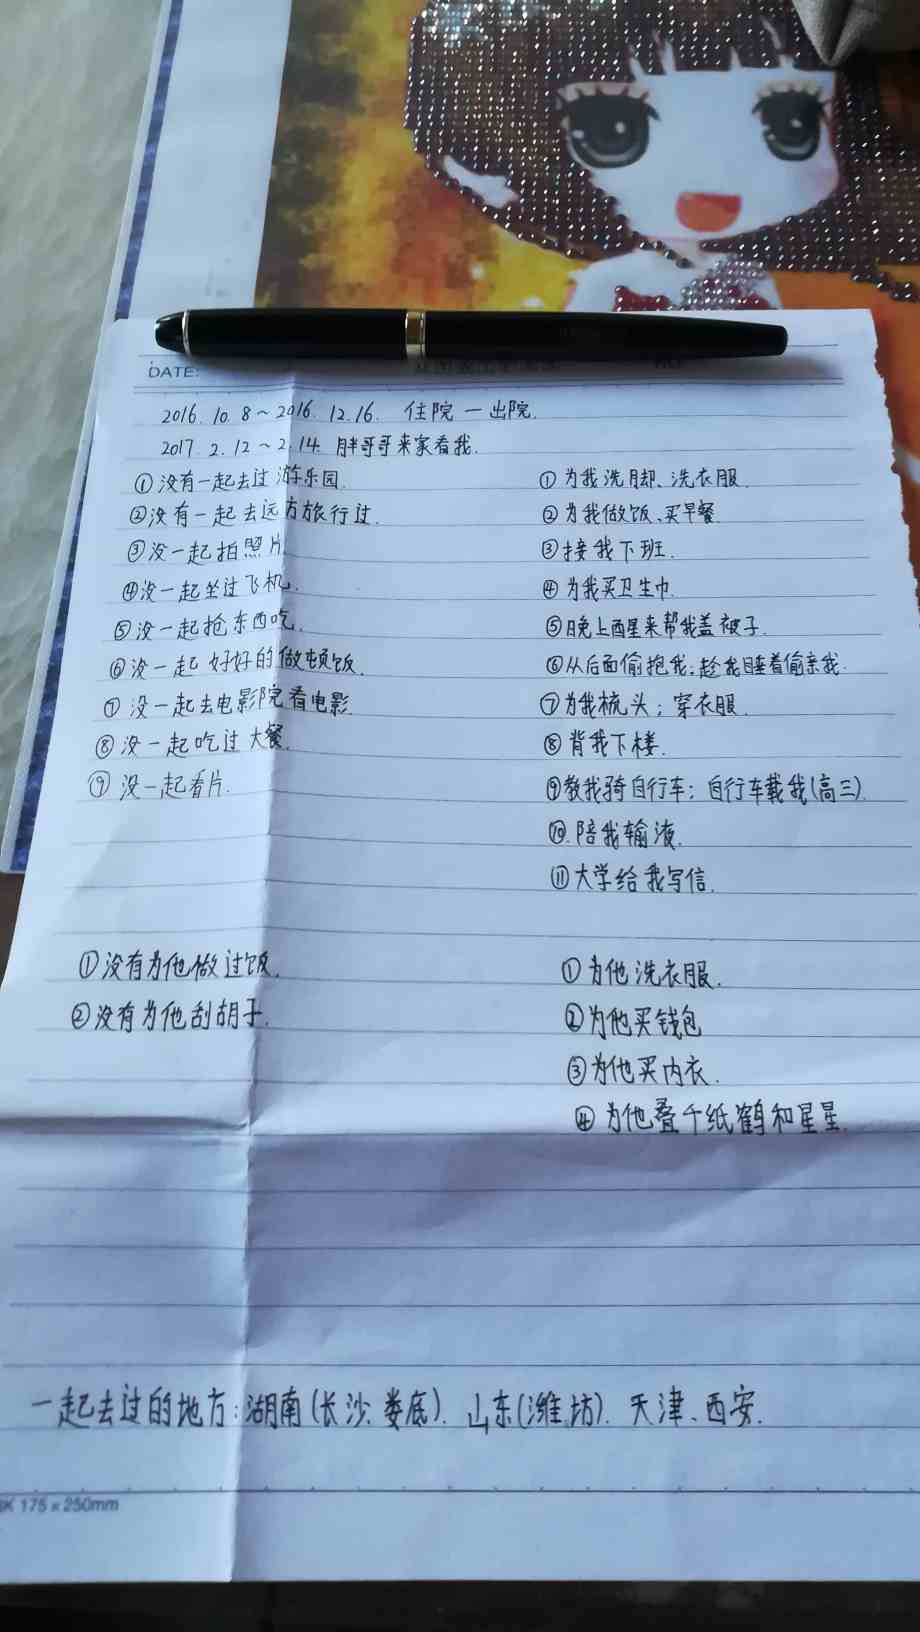 DATE:
2016.10.8～2016.12.16. 住院一出院.
2017.2.12～2.14. 胖哥哥来家看我.
①没有一起去过游乐园.
②没有一起去远方旅行过.
③没一起拍照片
④没一起坐过飞机.
⑤没一起抢东西吃.
⑥没一起好好的做顿饭.
⑦没一起去电影院看电影.
⑧没一起吃过大餐.
⑨没一起看片.
①为我洗脚、洗衣服.
②为我做饭、买早餐.
③接我下班.
④为我买卫生巾.
⑤晚上醒来帮我盖被子.
⑥从后面偷抱我;趁我睡着偷亲我.
⑦为我梳头;穿衣服.
⑧背我下楼.
⑨教我骑自行车;自行车载我(高三).
⑩陪我输液.
⑪大学给我写信.
①没有为他做过饭.
②没有为他刮胡子.
①为他洗衣服.
②为他买钱包
③为他买内衣.
④为他叠千纸鹤和星星.
一起去过的地方:湖南(长沙、娄底).山东(潍坊).天津、西安.
K 175×250mm